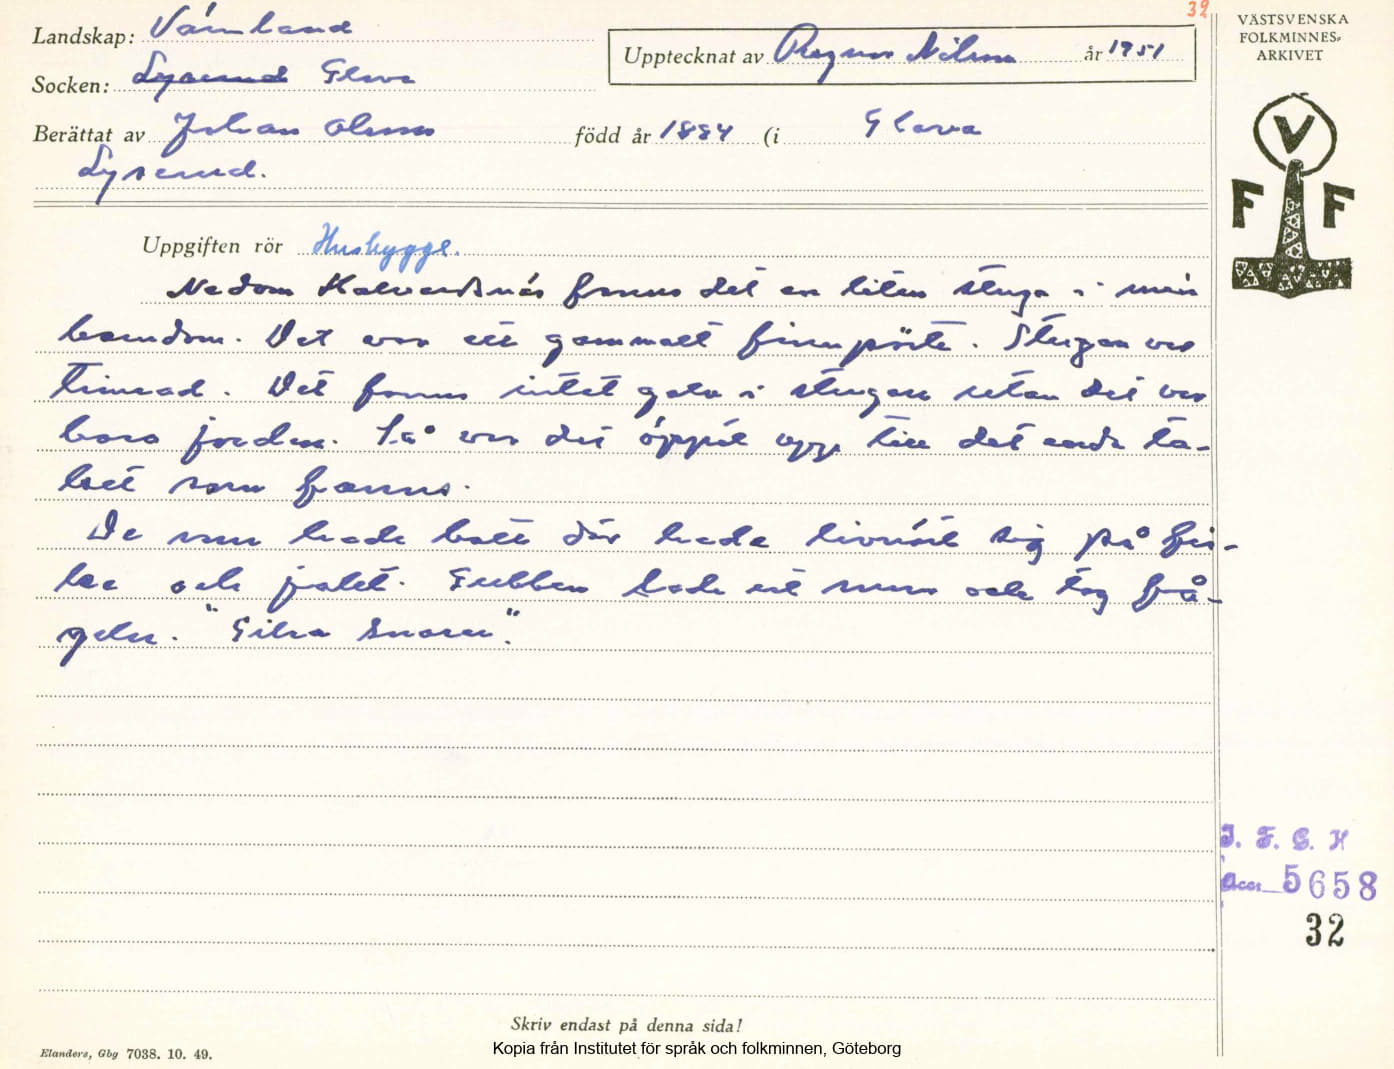 32
Landskap: Värmland
Upptecknat av Ragnar Nilsson år 1951
Socken: Lyserud Glava
Berättat av Johan Olsson född år 1884 (i Glava
Lyserud.
Uppgiften rör Husbygge.
Nedom Kalvudsnäs fanns det en liten stuga i min
barndom. Det var ett gammalt finnpörte. Stugan var
timrad. Det fanns intet golv i stugan utan det var
bara jorden. Så var det öppet upp till det enda ta-
ket som fanns.
De som hade bott där hade livnärt sig på fis-
ke och jakt. Gubben hade ut snaror och tog få-
geln. "Gilra snaror".
Skriv endast på denna sida!
Elanders, Gbg 7038. 10. 49.
Kopia från Institutet för språk och folkminnen, Göteborg
VÄSTSVENSKA
FOLKMINNES-
ARKIVET
V
F F
I. F. G. H
Acc. 5658
32